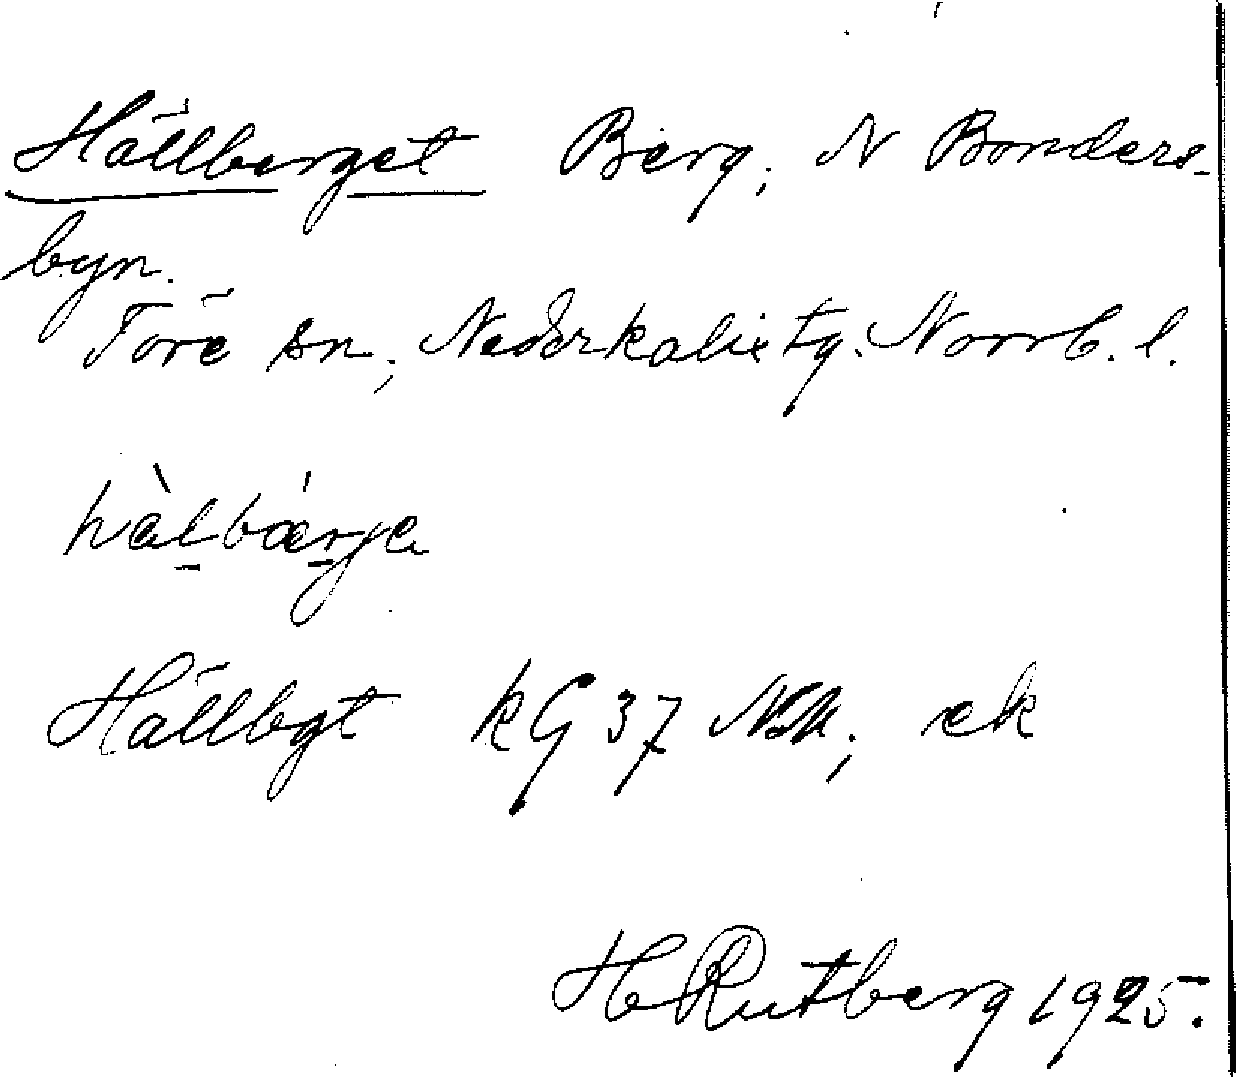 Hällberget Berg, N Bonders-
byn.
Töre sn, Nederkalix tg. Norrb. l.
hàlbárja
Hällbgt kG 37 ek
H Rutberg 1925.